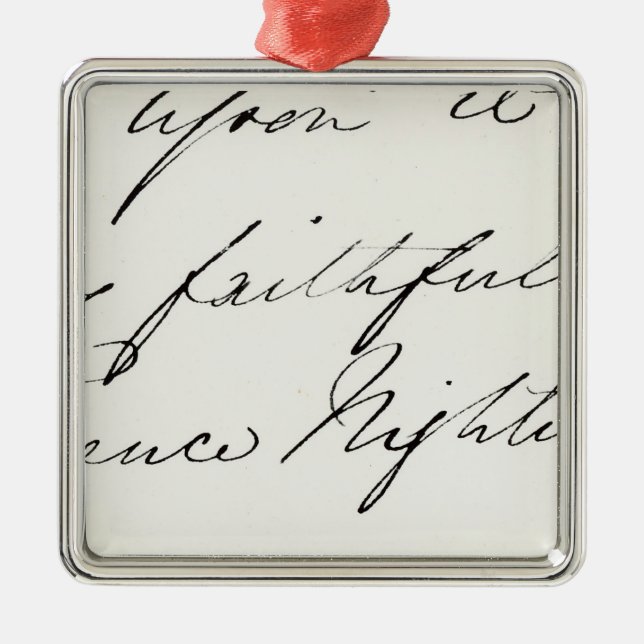 upon it
faithful
ence Nighti